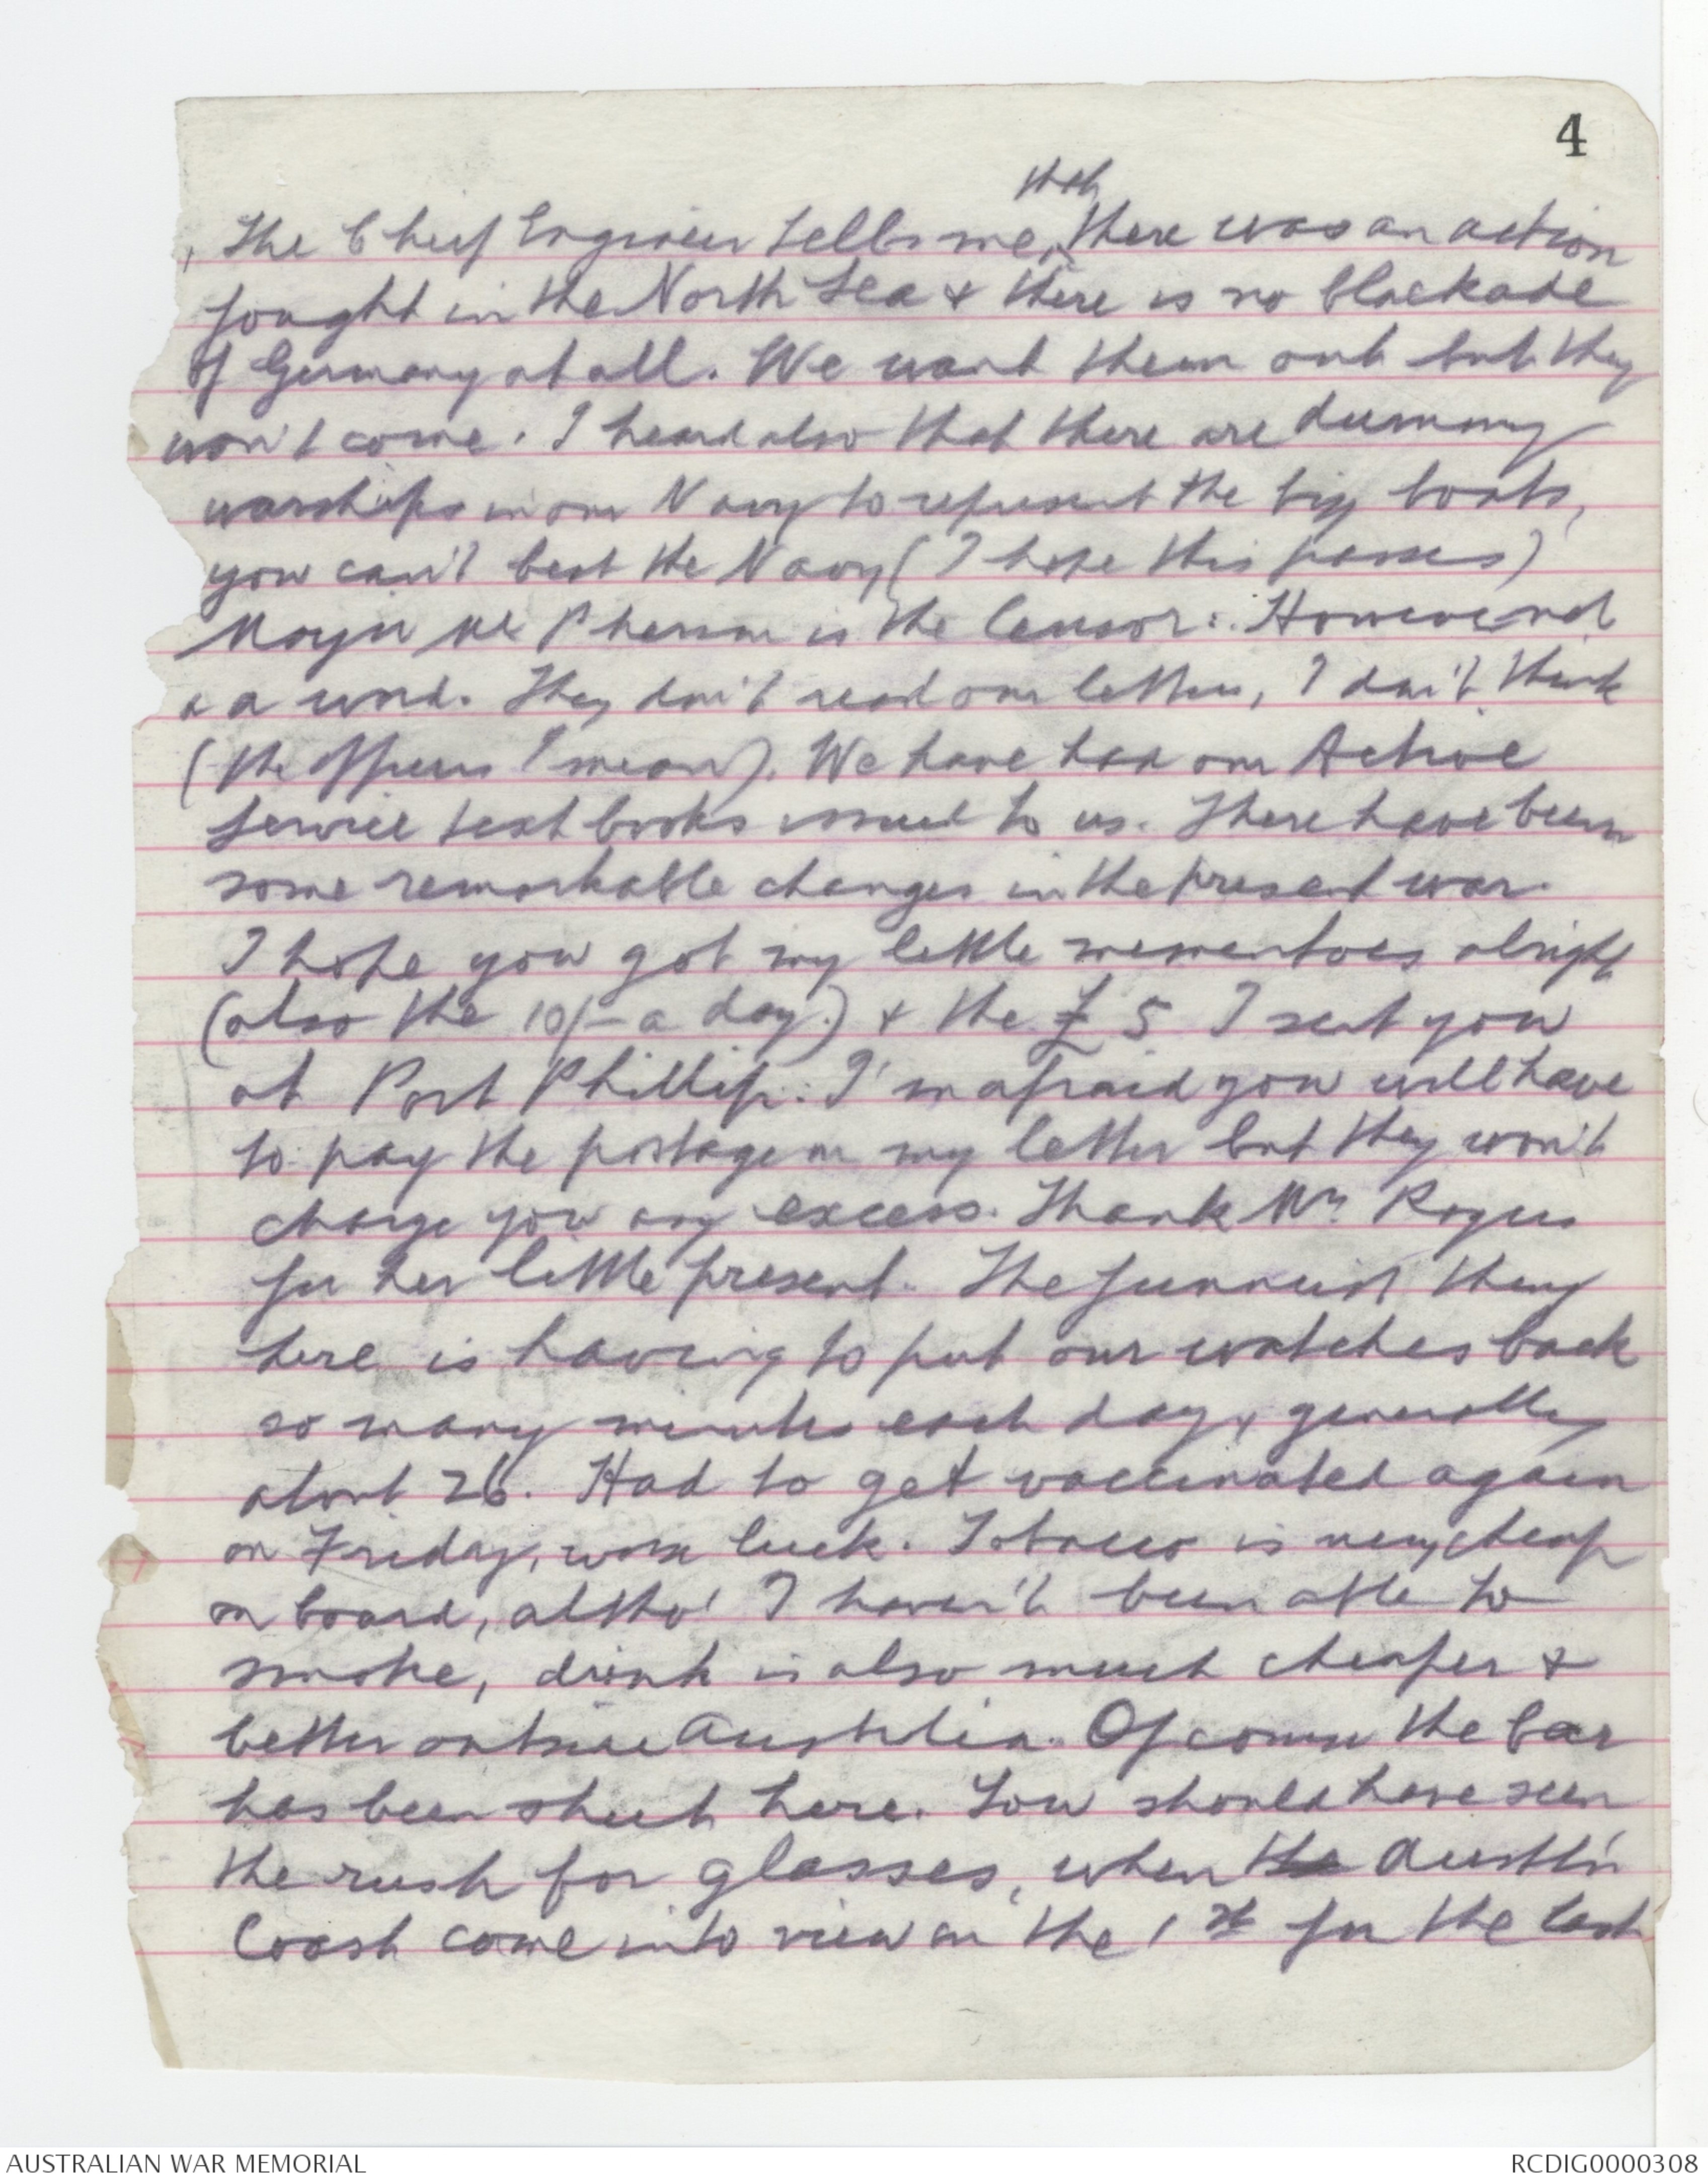 4
that
The Chief Engineer tells me, there was an action
fought in the North Sea & there is no blackade
of Germany at all. We want them out but they
won't come. I heard also that there are dummy
warships in our Navy to represent the big boats,
you can't beat the Navy (I hope this passes)
Major McPherson is the Censor. However not
a word. They don't read our letters, I don't think
(the officers I mean). We have had our Active
Service text books issued to us. There have been
some remarkable changes in the present war.
I hope you got my little mementoes alright
(also the 10/- a day.) & the £5 I sent you
at Port Phillip. I'm afraid you will have
to pay the postage on my letter but they won't
charge you any excess. Thank Mrs Rogers
for her little present. The funniest thing
here is having to put our watches back
so many minutes each day, generally
about 26. Had to get vaccinated again
on Friday, worse luck. Tobacco is very cheap
on board, altho' I haven't been able to
smoke, drink is also much cheaper &
better outside Australia. Of course the bar
has been shut here. You should have seen
the rush for glasses, when the Austl'n
Coast come into view on the 1st for the last
AUSTRALIAN WAR MEMORIAL
RCDIG0000308